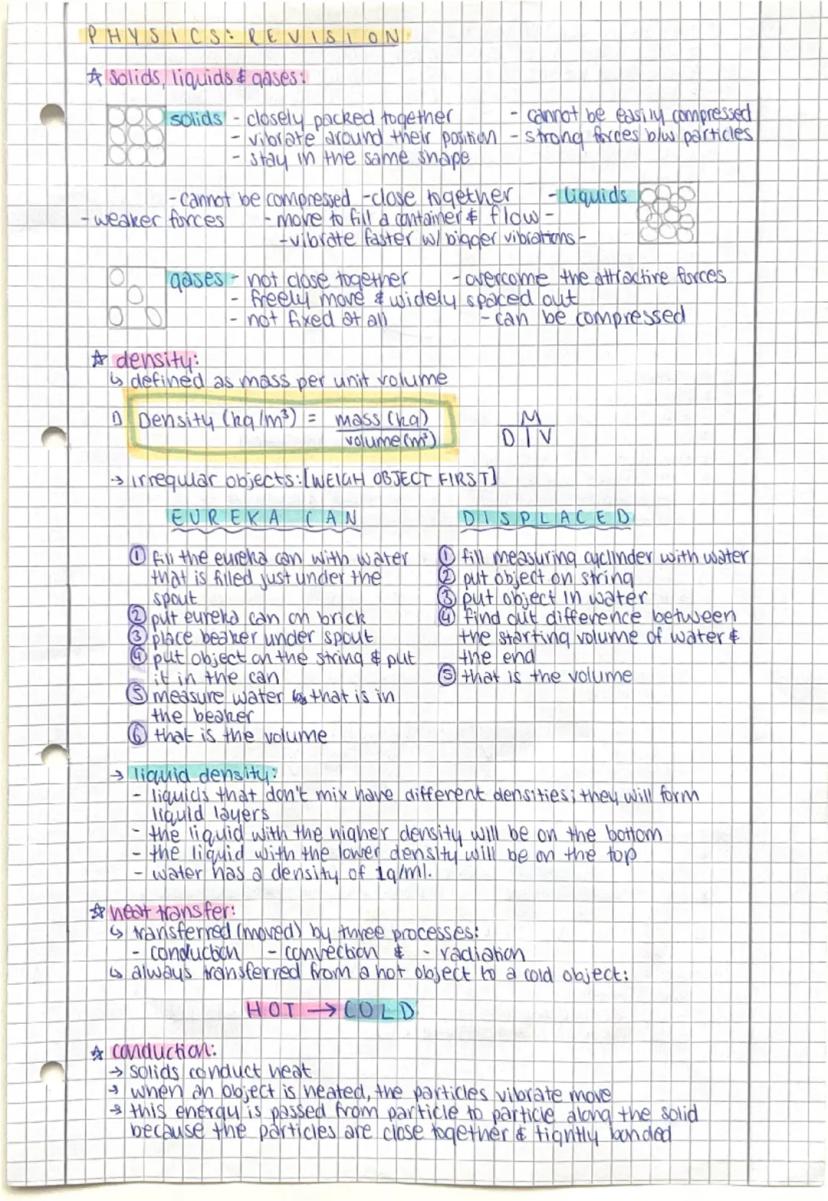 PHYSICS: REVISION
☆ solids, liquids & gases:
solids - closely packed together - cannot be easily compressed
- vibrate around their position - strong forces b/w particles
- stay in the same shape
- cannot be compressed - close together - liquids
- weaker forces - move to fill a container & flow -
- vibrate faster w/ bigger vibrations -
gases - not close together - overcome the attractive forces
- freely move & widely spaced out
- not fixed at all - can be compressed
☆ density:
↳ defined as mass per unit volume
1) Density (kg/m³) = mass (kg)
volume (m³)
M
D | V
→ irregular objects: [WEIGH OBJECT FIRST]
EUREKA CAN
① fill the eureka can with water
that is filled just under the
spout
② put eureka can on brick
③ place beaker under spout
④ put object on the string & put
it in the can
⑤ measure water that is in
the beaker
⑥ that is the volume
DISPLACED
① fill measuring cyclinder with water
② put object on string
③ put object in water
④ find out difference between
the starting volume of water &
the end
⑤ that is the volume
→ liquid density:
- liquids that don't mix have different densities; they will form
liquid layers
- the liquid with the higher density will be on the bottom
- the liquid with the lower density will be on the top
- water has a density of 1g/ml.
☆ heat transfer:
↳ transferred (moved) by three processes:
- conduction - convection & - radiation
↳ always transferred from a hot object to a cold object:
HOT → COLD
☆ conduction:
→ solids conduct heat
→ when an object is heated, the particles vibrate move
→ this energy is passed from particle to particle along the solid
because the particles are close together & tightly bonded